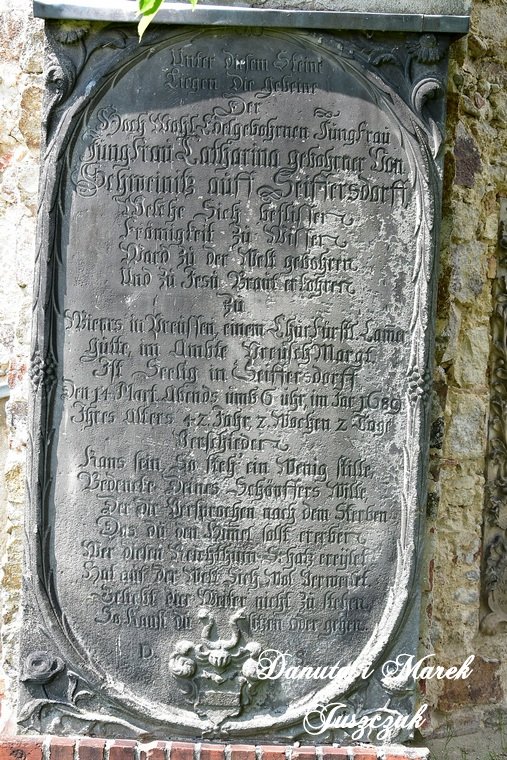 Unter diesem Steine
Liegen Die Gebeine
Der
Hoch Wohl Edelgebohrnen Jungfrau
Jungfrau Catharina gebohrner Von
Schweinitz auff Seiffersdorff
Welche Sich beflissen
Frömigkeit zu Wissen
Ward zu der Welt gebohren
Und zu Jesu Braut erkohren
Zu
in Preussen, einem ChurFürstl. Camer
gutte, im Ambte Preusch Margt.
Ist Seelig in Seiffersdorff
Den 14 Mart. Abends umb 6 uhr, im Jar 1689
Ihres Alters 42 Jahr, 2 Wochen 2 Tage
Verschieden
Kans sein, So steh ein Wenig stille,
Bedencke Deines Schöpffers Wille,
Der dir Versprochen nach dem Sterben
Das du den Himel solst ererben
Wer diesen Reichthum Schatz ereylet
Hat auf der Welt Sich Wol Verweilet.
Beliebt dier Weiter nicht zu stehen,
So Kanst du sitzen oder gehen.
D.
Danuta i Marek
Juszczuk